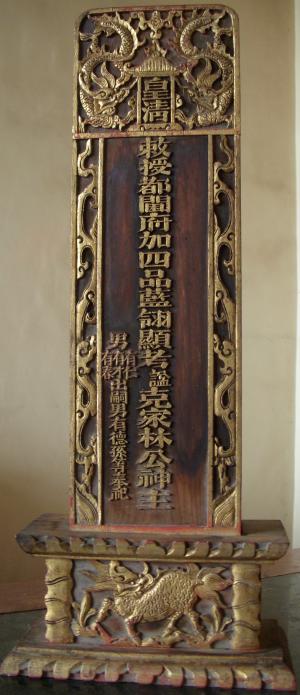 皇清
敕授都閫府加四品藍翎顯考諡克家林公神主
男有泰出嗣男有德孫奉祀